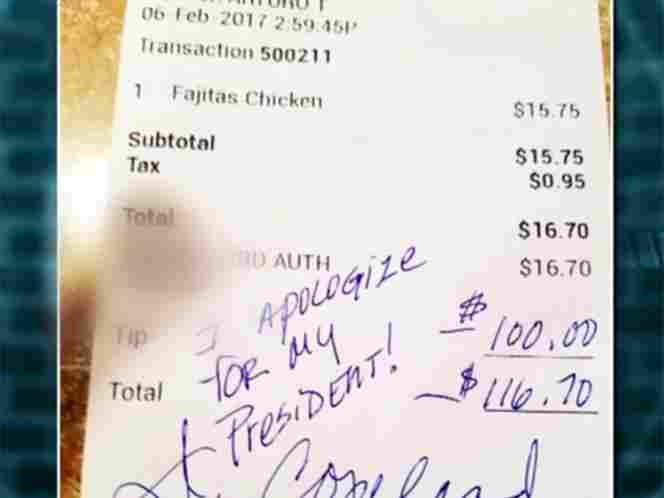 06 Feb 2017 2:59:45P
Transaction 500211
1 Fajitas Chicken $15.75
Subtotal $15.75
Tax $0.95
Total $16.70
AUTH $16.70
Tip $100.00
Total $116.70
I APOLOGIZE
FOR MY
PRESIDENT!
Copeland